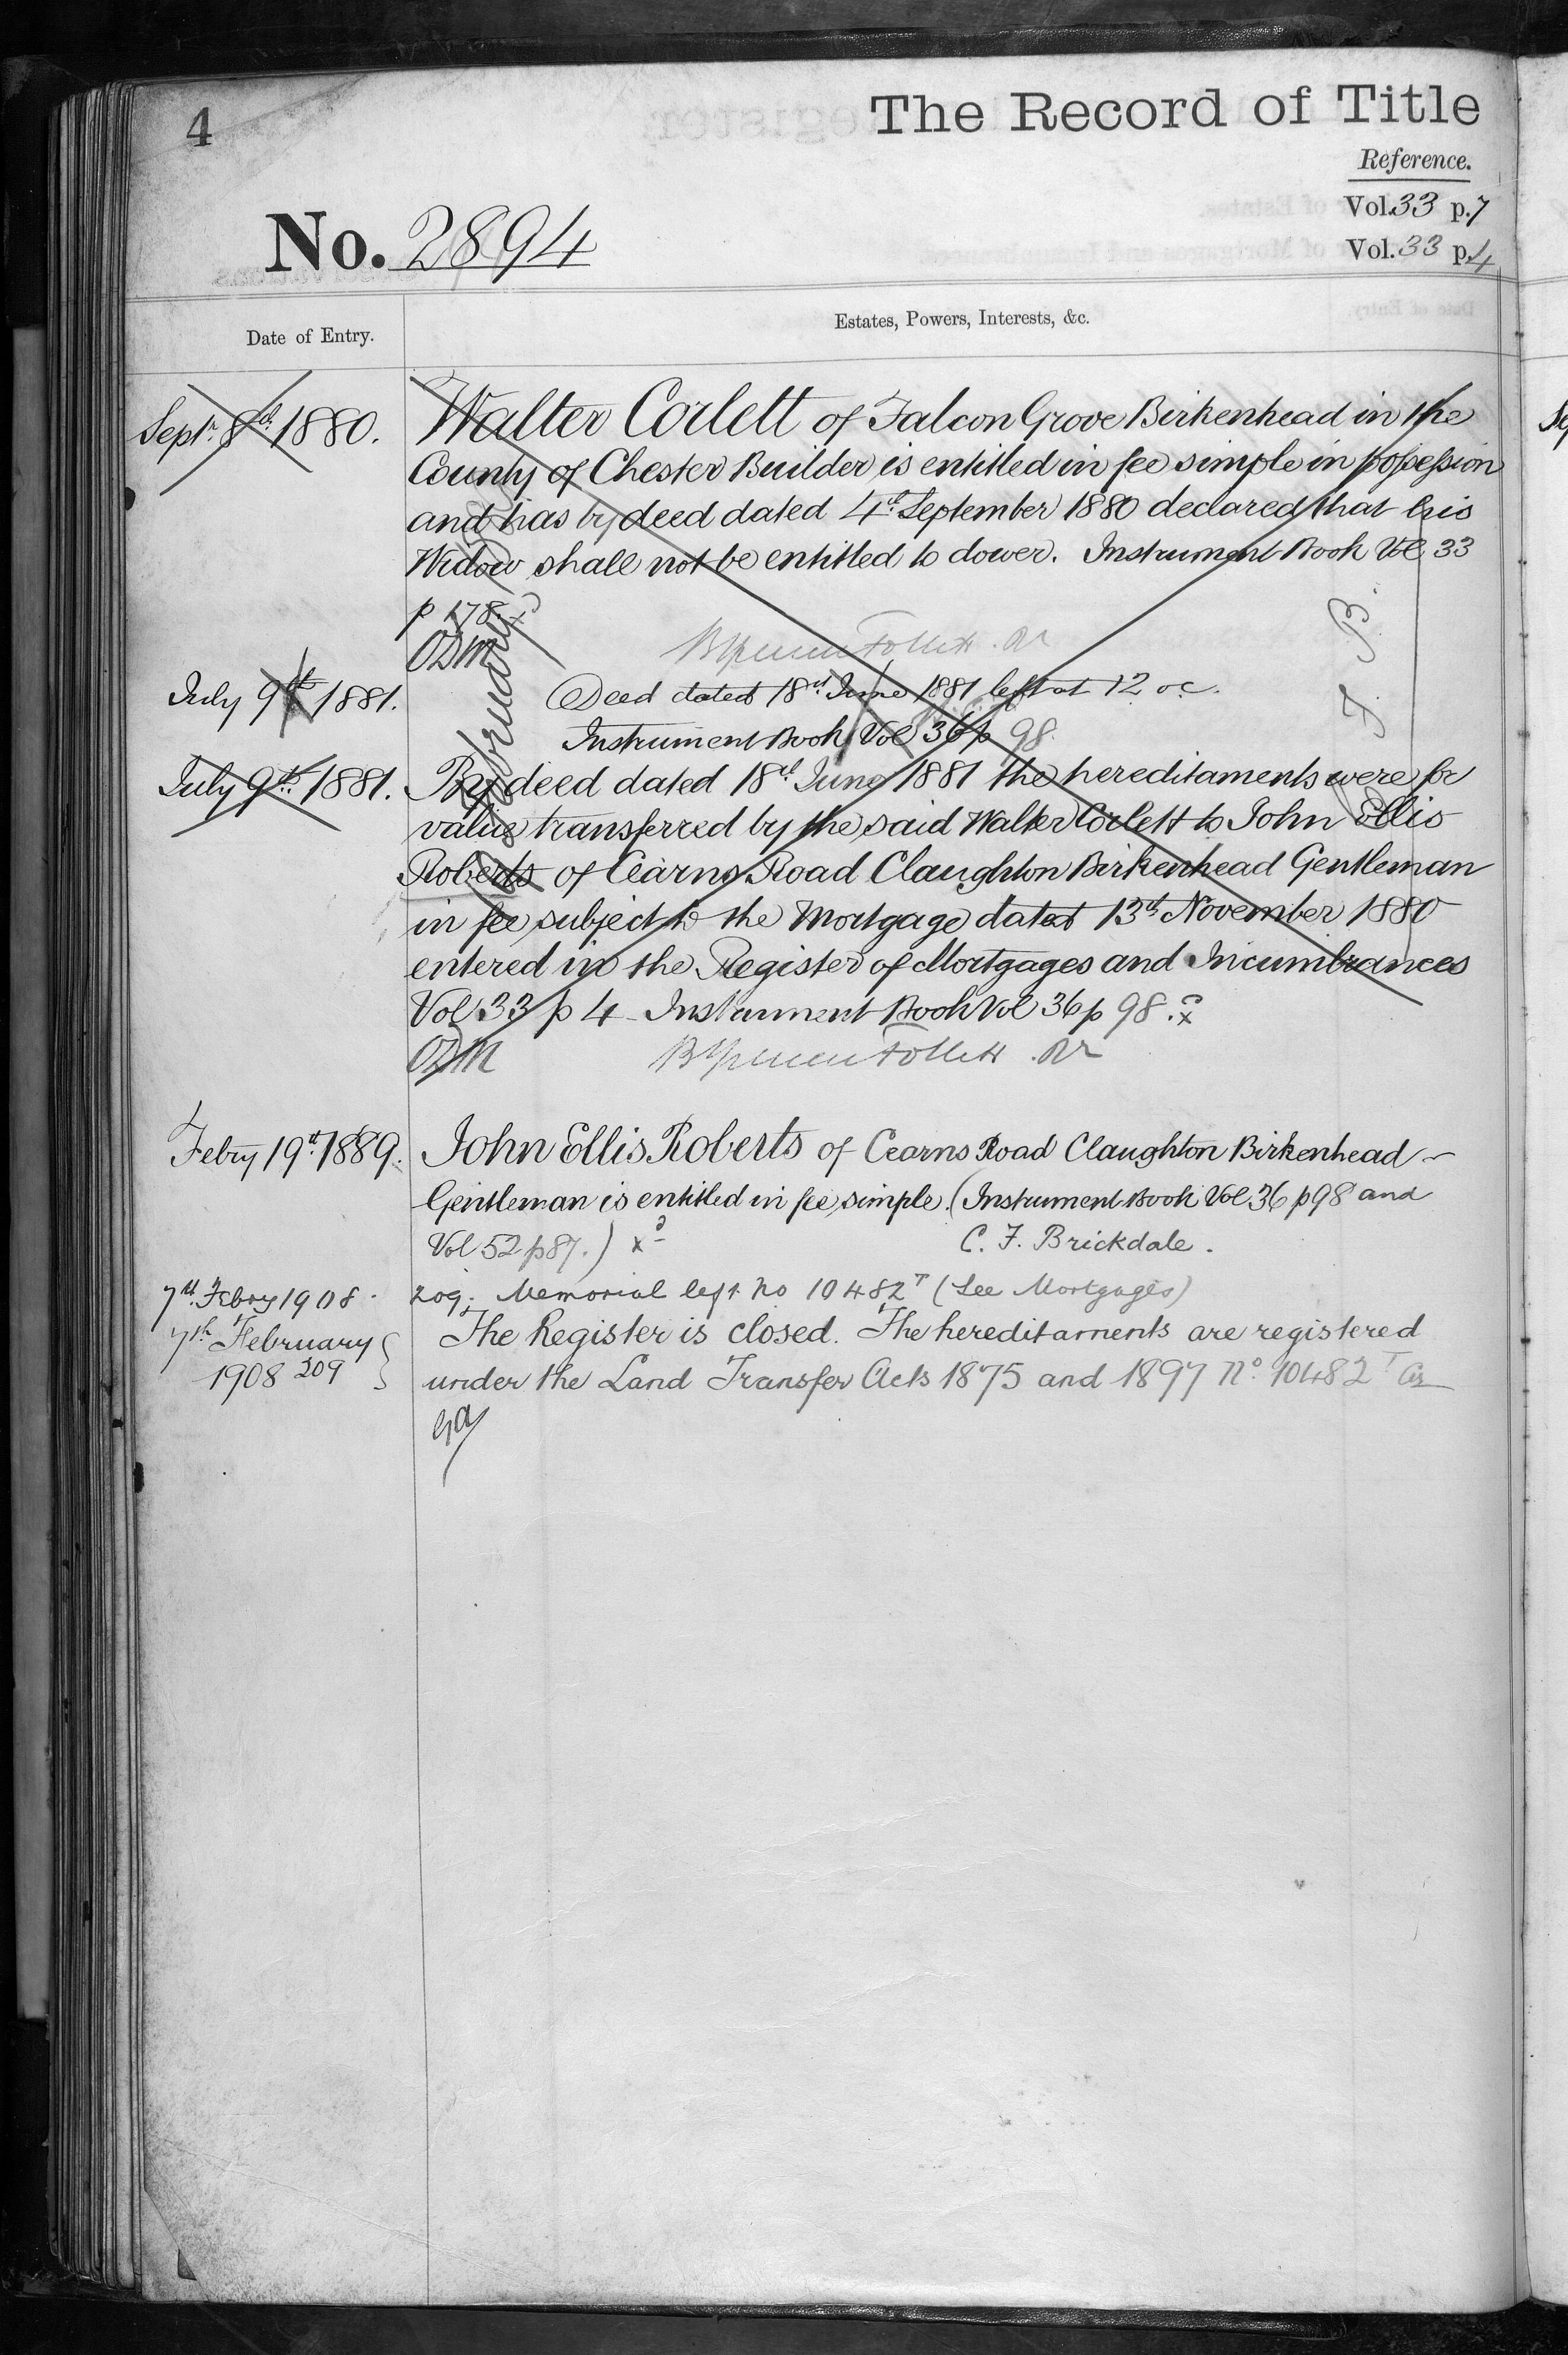 4
The Record of Title
Reference.
Vol. 33 p. 7
Vol. 33 p. 4
No. 2894
Date of Entry.
Estates, Powers, Interests, &c.
Septr. 8th 1880.
Walter Corlett of Falcon Grove Birkenhead in the
County of Chester Builder is entitled in fee simple in possession
and has by deed dated 4th September 1880 declared that his
Widow shall not be entitled to dower. Instrument Book Vol 33
p 178.
July 9th 1881.
Deed dated 18th June 1881 left at 12 oc.
Instrument Book Vol 36 p 98.
July 9th 1881.
By deed dated 18th June 1881 the hereditaments were for
value transferred by the said Walter Corlett to John Ellis
Roberts of Cearns Road Claughton Birkenhead Gentleman
in fee subject to the Mortgage dated 13th November 1880
entered in the Register of Mortgages and Incumbrances
Vol 33 p 4 - Instrument Book Vol 36 p 98.
Febry 19th 1889.
John Ellis Roberts of Cearns Road Claughton Birkenhead
Gentleman is entitled in fee simple. (Instrument Book Vol 36 p 98 and
Vol 52 p 87.)
C. F. Brickdale.
7th Febry 1908.
209. Memorial left No 10482T (See Mortgages)
7th February
1908 209
The Register is closed. The hereditaments are registered
under the Land Transfer Acts 1875 and 1897 No. 10482T